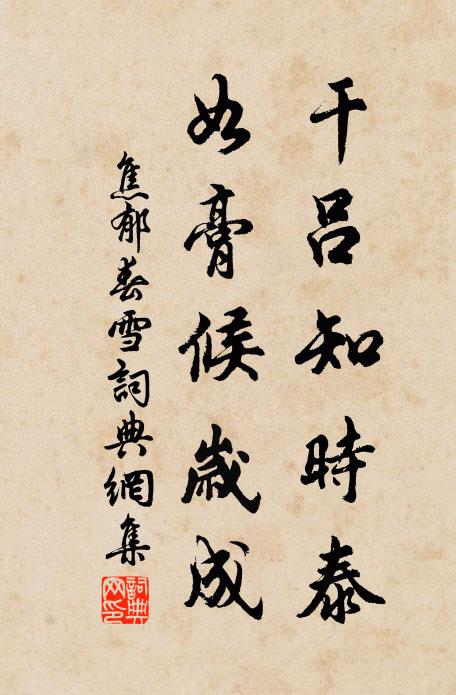 干吕知時泰
如膏候歲成
焦郁春雪詞典網集
詞典网印